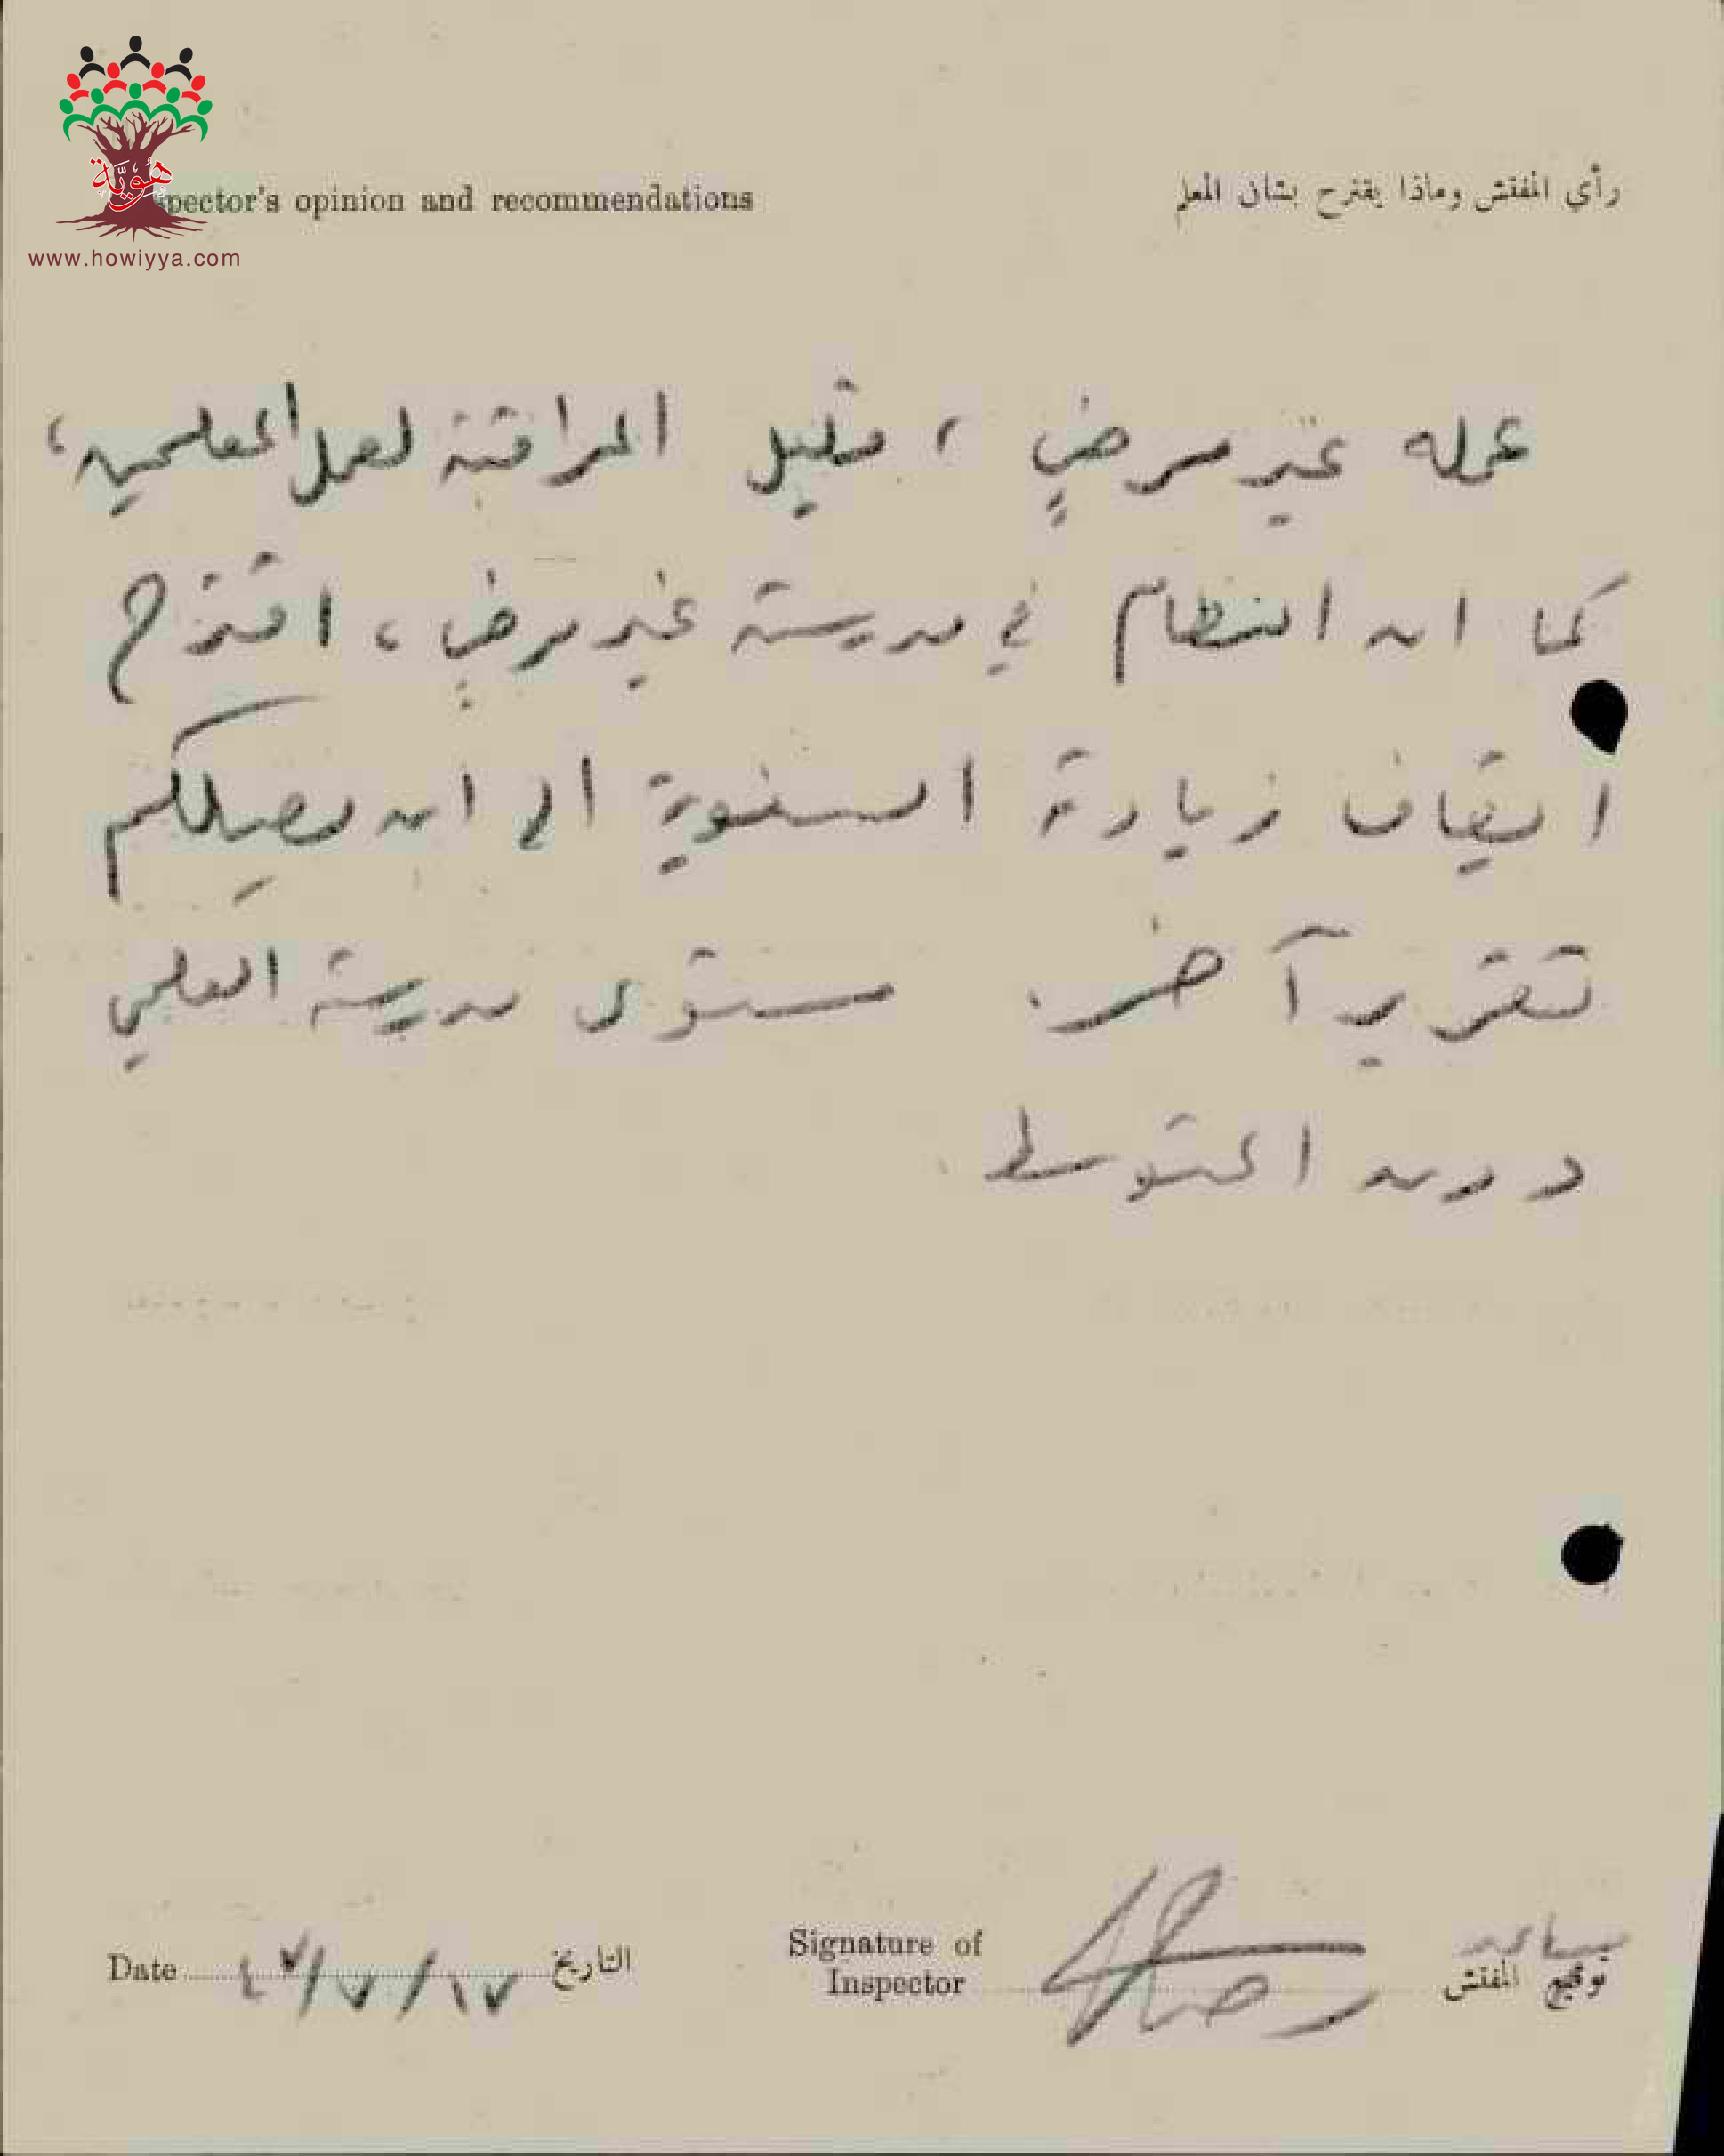 هوية
www.howiyya.com
spector's opinion and recommendations
رأي المفتش وماذا يقترح بشأن المعلم
عمله غير مرضٍ ، قليل المراقبة لعمل المعلمين ،
كما ان النظام في مدرسته غير مرضٍ ، اقترح
ايقاف زيادته السنوية الى ان يصلكم
تقرير آخر . مستوى مدرسته العلمي
دون المتوسط .
Date ١٧/٧/٤٧ التاريخ
Signature of Inspector
مساعد
توقيع المفتش